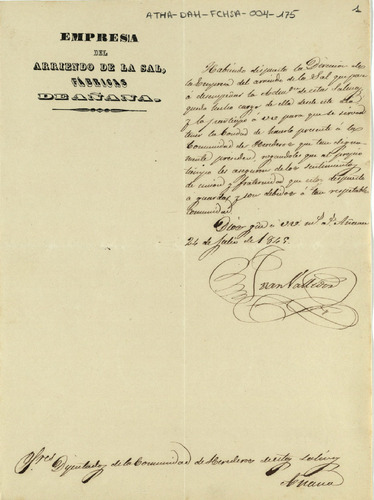 ATHA-DAH-FCHSA-004-175
1
EMPRESA
DEL
ARRIENDO DE LA SAL,
FÁBRICAS
DE AÑANA.
Habiendo dispuesto la Direccion de
la Empresa del arriendo de la Sal que pase
á desempeñar la de estas Salinas,
quedo hecho cargo de ella desde este dia
y lo participo á VV para que se sirvan
tener la bondad de hacerlo presente á la
Comunidad de Herederos que tan digna-
mente presiden, rogandoles que al propio
tiempo les aseguren de los sentimientos
de union y fraternidad que estoy dispuesto
a guardar y son debidos á tan respetable
Comunidad.
Dios gue á VV ms. as. Añana
24 de Julio de 1845.
Juan
Sres Diputados de la Comunidad de Herederos de estas Salinas
Añana